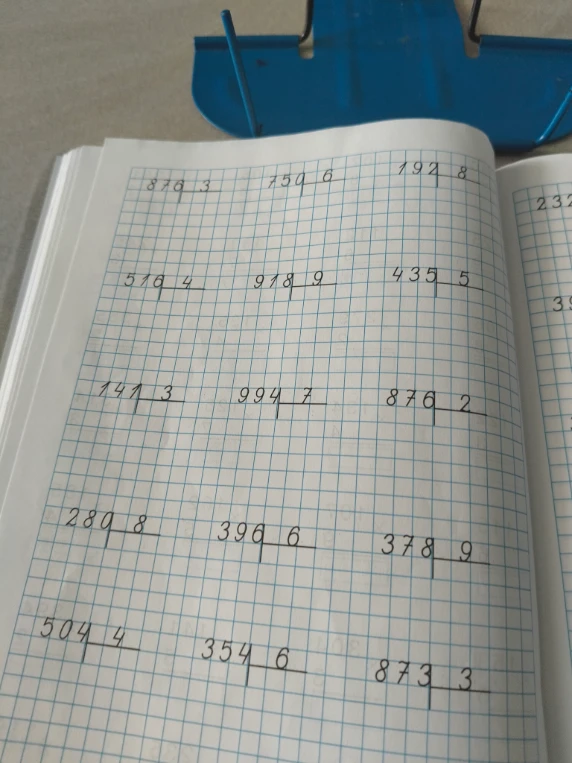 876 3 750 6 192 8
516 4 918 9 435 5
141 3 994 7 876 2
280 8 396 6 378 9
504 4 354 6 873 3
232
39